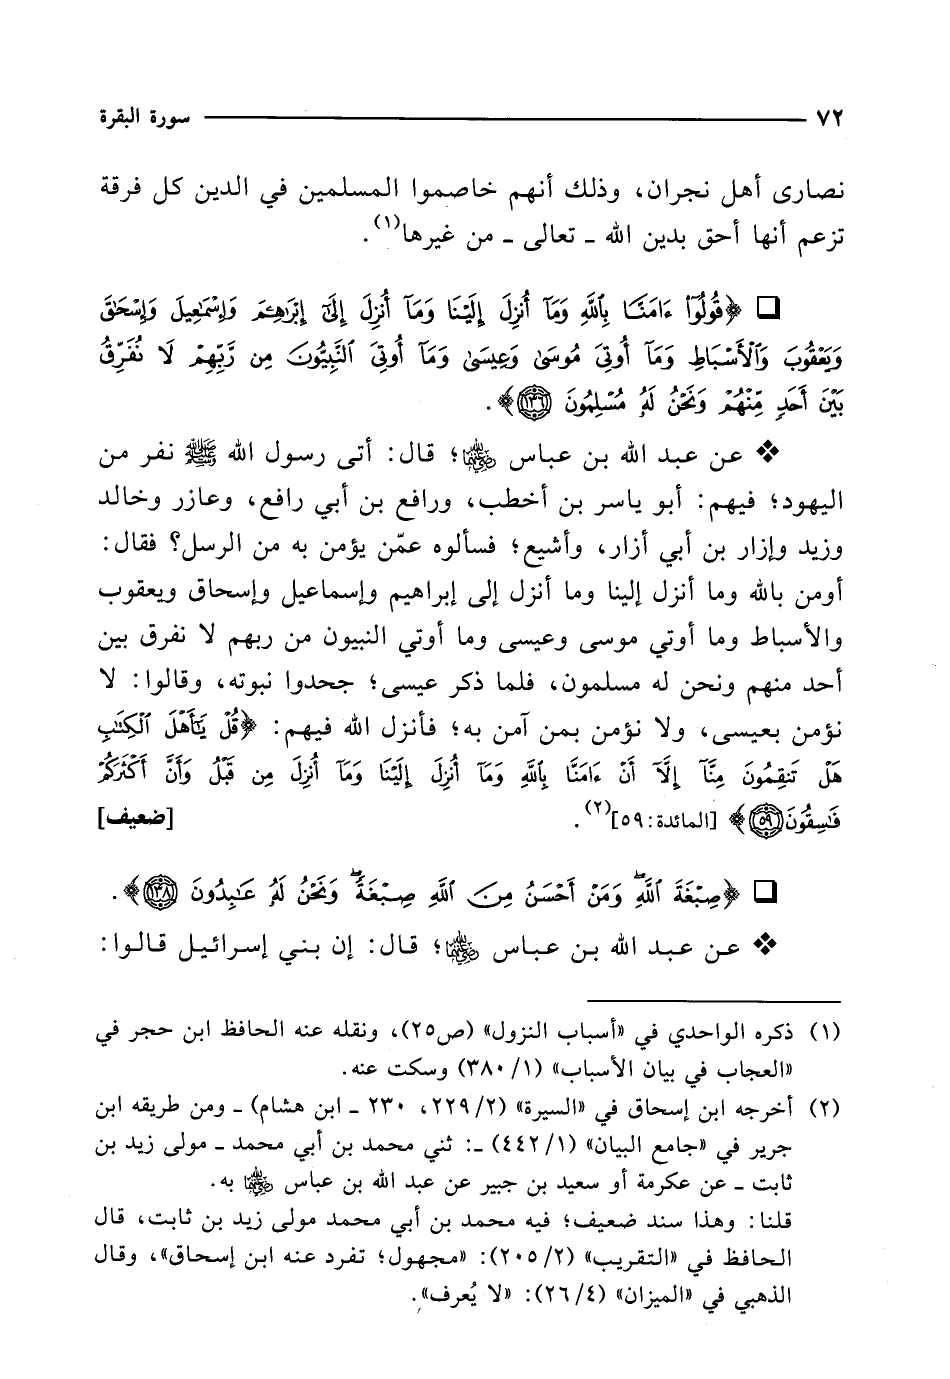 ٧٢ سورة البقرة
نصارى أهل نجران، وذلك أنهم خاصموا المسلمين في الدين كل فرقة
تزعم أنها أحق بدين الله ـ تعالى ـ من غيرها(١).
❑ ﴿قُولُوٓا۟ ءَامَنَّا بِٱللَّهِ وَمَآ أُنزِلَ إِلَيْنَا وَمَآ أُنزِلَ إِلَىٰٓ إِبْرَٰهِـۧمَ وَإِسْمَٰعِيلَ وَإِسْحَٰقَ
وَيَعْقُوبَ وَٱلْأَسْبَاطِ وَمَآ أُوتِىَ مُوسَىٰ وَعِيسَىٰ وَمَآ أُوتِىَ ٱلنَّبِيُّونَ مِن رَّبِّهِمْ لَا نُفَرِّقُ
بَيْنَ أَحَدٍ مِّنْهُمْ وَنَحْنُ لَهُۥ مُسْلِمُونَ ١٣٦﴾.
❖ عن عبد الله بن عباس رضي الله عنهما؛ قال: أتى رسول الله ﷺ نفر من
اليهود؛ فيهم: أبو ياسر بن أخطب، ورافع بن أبي رافع، وعازر وخالد
وزيد وإزار بن أبي أزار، وأشيع؛ فسألوه عمّن يؤمن به من الرسل؟ فقال:
أومن بالله وما أنزل إلينا وما أنزل إلى إبراهيم وإسماعيل وإسحاق ويعقوب
والأسباط وما أوتي موسى وعيسى وما أوتي النبيون من ربهم لا نفرق بين
أحد منهم ونحن له مسلمون، فلما ذكر عيسى؛ جحدوا نبوته، وقالوا: لا
نؤمن بعيسى، ولا نؤمن بمن آمن به؛ فأنزل الله فيهم: ﴿قُلْ يَٰٓأَهْلَ ٱلْكِتَٰبِ
هَلْ تَنقِمُونَ مِنَّآ إِلَّآ أَنْ ءَامَنَّا بِٱللَّهِ وَمَآ أُنزِلَ إِلَيْنَا وَمَآ أُنزِلَ مِن قَبْلُ وَأَنَّ أَكْثَرَكُمْ
فَٰسِقُونَ ٥٩﴾ [المائدة: ٥٩](٢). [ضعيف]
❑ ﴿صِبْغَةَ ٱللَّهِ ۖ وَمَنْ أَحْسَنُ مِنَ ٱللَّهِ صِبْغَةً ۖ وَنَحْنُ لَهُۥ عَٰبِدُونَ ١٣٨﴾.
❖ عن عبد الله بن عباس رضي الله عنهما؛ قال: إن بني إسرائيل قالوا:
(١) ذكره الواحدي في «أسباب النزول» (ص٢٥)، ونقله عنه الحافظ ابن حجر في
«العجاب في بيان الأسباب» (١/ ٣٨٠) وسكت عنه.
(٢) أخرجه ابن إسحاق في «السيرة» (٢/ ٢٢٩، ٢٣٠ ـ ابن هشام) ـ ومن طريقه ابن
جرير في «جامع البيان» (١/ ٤٤٢) ـ: ثني محمد بن أبي محمد ـ مولى زيد بن
ثابت ـ عن عكرمة أو سعيد بن جبير عن عبد الله بن عباس رضي الله عنهما به.
قلنا: وهذا سند ضعيف؛ فيه محمد بن أبي محمد مولى زيد بن ثابت، قال
الحافظ في «التقريب» (٢/ ٢٠٥): «مجهول؛ تفرد عنه ابن إسحاق»، وقال
الذهبي في «الميزان» (٤/ ٢٦): «لا يُعرف».